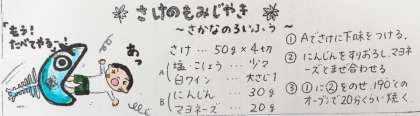 さけのもみじやき
～さかなのろいふう～
「もう!
たべてやる…!」
あっ
さけ … 50g×4切
A 塩・こしょう … 少々
白ワイン … 大さじ1
B にんじん … 30g
マヨネーズ … 20g
① Aでさけに下味をつける。
② にんじんをすりおろし、マヨネ
ーズとまぜ合わせる
③ ①に②をのせ、190℃の
オーブンで20分くらい焼く。